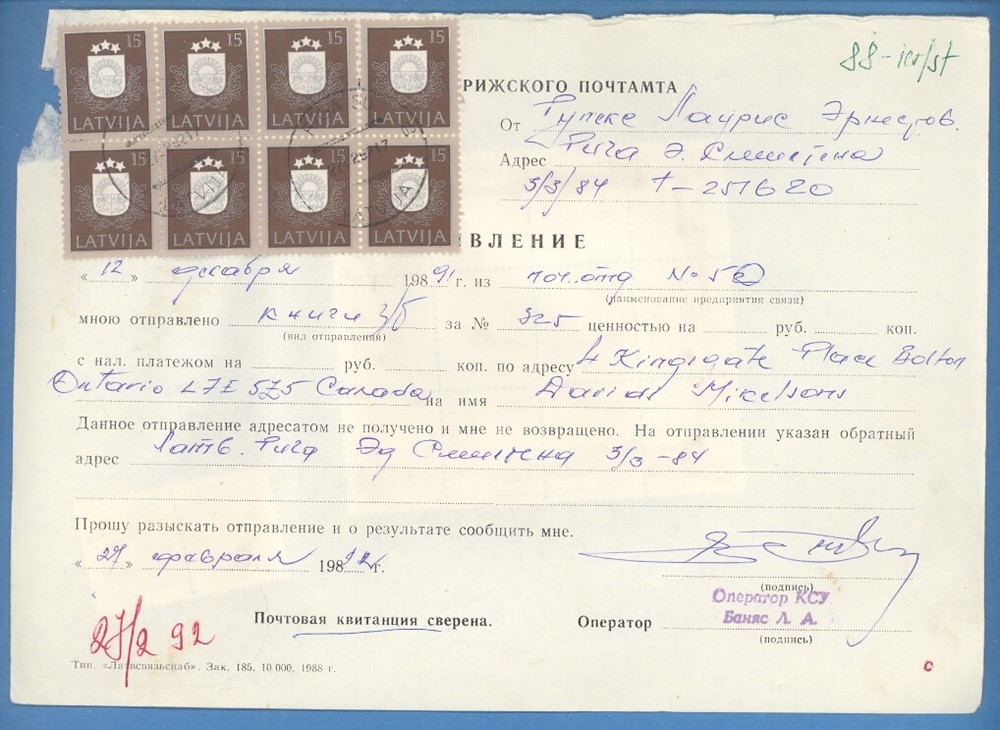 15 15 15 15
LATVIJA LATVIJA LATVIJA LATVIJA
15 15 15 15
LATVIJA LATVIJA LATVIJA LATVIJA
88-
РИЖСКОГО ПОЧТАМТА
От Лаурис
Адрес Рига Э. Смильгена
3/3/84 т-251620
ВЛЕНИЕ
« 12 » декабря 1989 91 г. из поч. отд № 50
(наименование предприятия связи)
мною отправлено книги з/б за № 325 ценностью на руб. коп.
(вид отправления)
с нал. платежом на руб. коп. по адресу 4 Kingsgate Place Bolton
Ontario L7E 5Z5 Canada на имя Mikelsons
Данное отправление адресатом не получено и мне не возвращено. На отправлении указан обратный
адрес Латв. Рига Эд Смильгена 3/3-84
Прошу разыскать отправление и о результате сообщить мне.
« 27 » февраля 198 92 г.
(подпись)
Оператор КСУ
Баняс Л. А.
Почтовая квитанция сверена. Оператор
(подпись)
27/2 92
Тип. «Латвсвязьснаб». Зак. 185. 10 000. 1988 г.